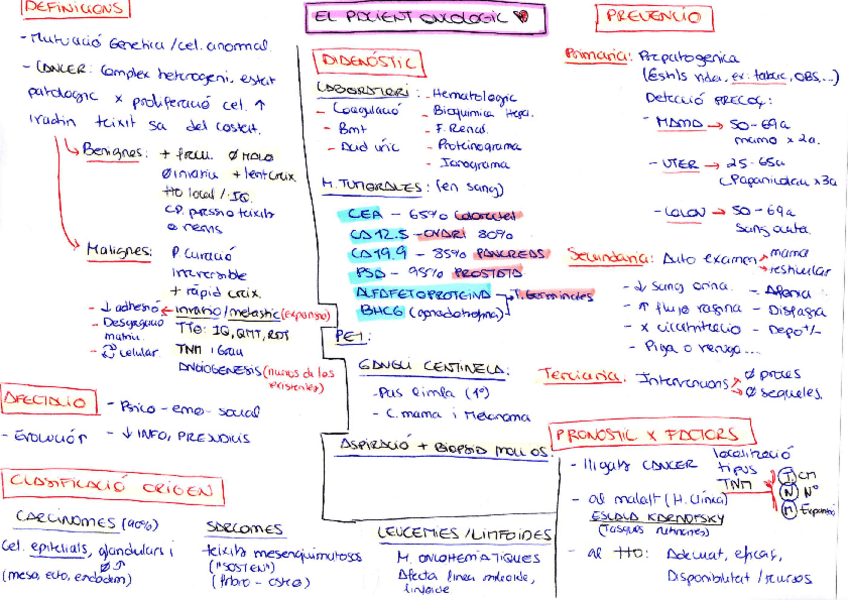 DEFINICIONS
- Mutació Genètica / cel. anormal
- CANCER: Complex heterogeni, estat
patologic x proliferació cel. ↑
teixit sa del costat.
Benignes:
Ø invasiu + lent creix.
TTO local / IQ.
Malignes: P curació
irreversible
+ ràpid creix.
- ↓ adhesió
invasiu / metastic (expansio)
TTO: IQ, QMT, RDT
matriu.
celular.
TNM i Grau
ANGIOGENESIS (nunos de los
existentes)
AFECTACIO
- Psico - emo - social
- EVOLUCIÓN
- ↓ INFO, PREJUDICIS
CLASIFICACIÓ ORIGEN
CARCINOMES (90%)
Cel. epitelials, glandulars i
(meso, ecto, endoderm)
SARCOMES
teixits mesenquimatosos
("SOSTEN")
(fibro - osteo)
LEUCEMIES / LINFOIDES
M. ONCOHEMATIQUES
Afecta linea mieloide,
linfoide
EL PACIENT ONCOLOGIC
DIAGNÓSTIC
LABORATORI:
- Hematologic
- Coagulació
- Bioquimica Hepa.
- Bmt
- F. Renal.
- Acid úric
- Proteinograma
- Ionograma
M. TUMORALES: (en sang)
CEA - 65% Colorectal
CA 12.5 - OVARI 80%
CA 19.9 - 85% PANCREAS
PSA - 95% PROSTATA
ALFAFETOPROTEINA
T. Germinales
BHCG (gonadotrofina)
PET:
GANGLI CENTINELA:
- Pas limfa (1º)
- C. mama i Melanoma
ASPIRACIÓ + BIOPSIA MOLL OS.
PREVENCIO
Primaria: Prepatogenica
(Estils vida, ex: tabac, OBS,...)
Detecció PRECOÇ:
- MAMA → 50-69a
mamo x 2a.
- UTER → 25-65a
(Papanicolau x3a
- COLON → 50-69a
Sang oculta.
Secundaria: Auto examen
mama
testicular
- ↓ sang orina.
- Afonia
- ↑ flujo vagina
- Disfagia
- x cicatritzacio
- Depo +/-
- Piga o verruga...
Terciaria: Intervencions
Ø seqüeles.
PRONÒSTIC x FACTORS
- lligats CANCER
localització
tipus
TNM
T. cm
N Nº
M Expansió
- al malalt (H. Clinica)
ESCALA KARNOFSKY
- al TTO: Adequat, eficaç,
Disponibilitat / recursos